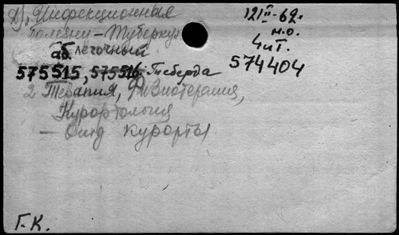 2), Инфекционная
болезни – Туберкул
аб легочный
575515, 575516 Теберда
2 Терапия, Физиотерапия,
Курортология
– Отд курорты
121 II – 62.
н.о.
4 ит.
574404
Г.К.